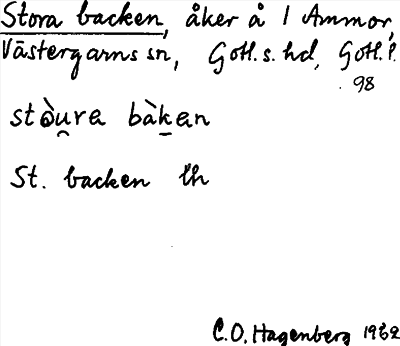 Stora backen, åker å 1 Ammor,
Västergarns sn, Gotl. s. hd, Gotl. l.
98
stòu̯ra bàk̠an
St. backen lh
C. O. Hagenberg 1962